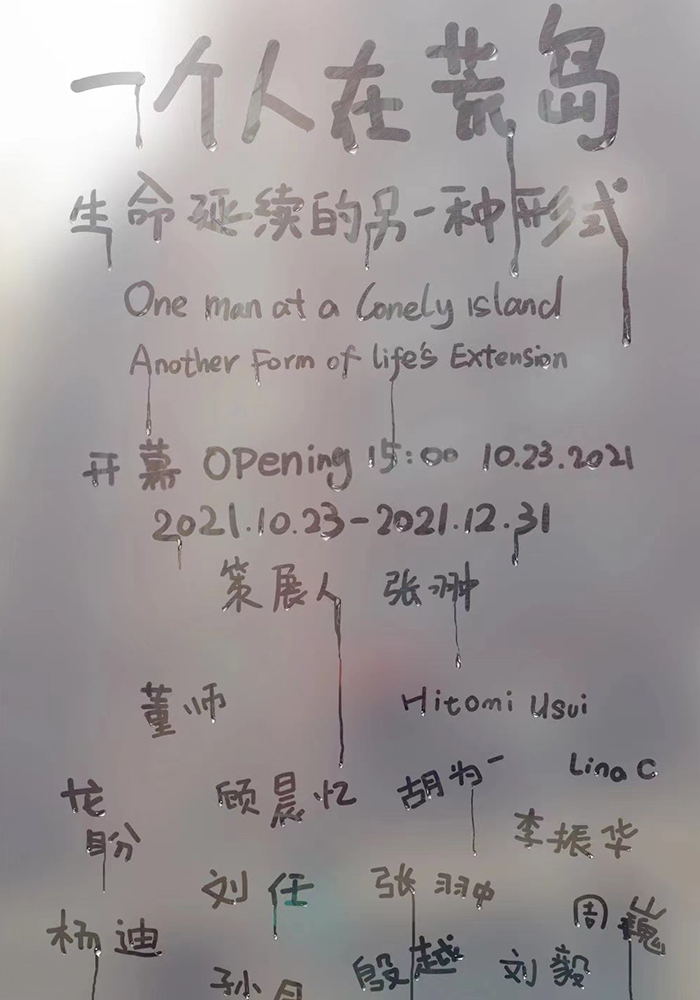 一个人在荒岛
生命延续的另一种形式
One man at a Lonely island
Another Form of life's Extension
开幕 Opening 15:00 10.23.2021
2021.10.23-2021.12.31
策展人 张翀
董师 Hitomi Usui
龙盼 顾晨忆 胡为一 Lina C
李振华
刘任 张翀 周巍
杨迪 殷越 刘毅
孙月